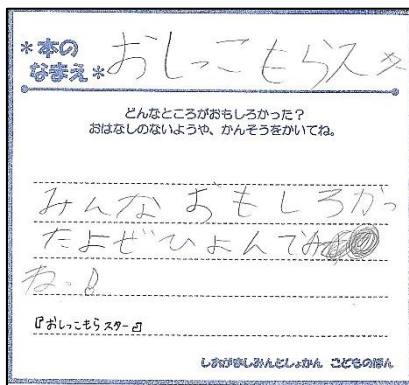 *本の
なまえ* おしっこもらスター
どんなところがおもしろかった?
おはなしのないようや、かんそうをかいてね。
みんなおもしろかっ
たよぜひよんでみ
ね。♪
『おしっこもらスター』
しおがましみんとしょかん こどものほん